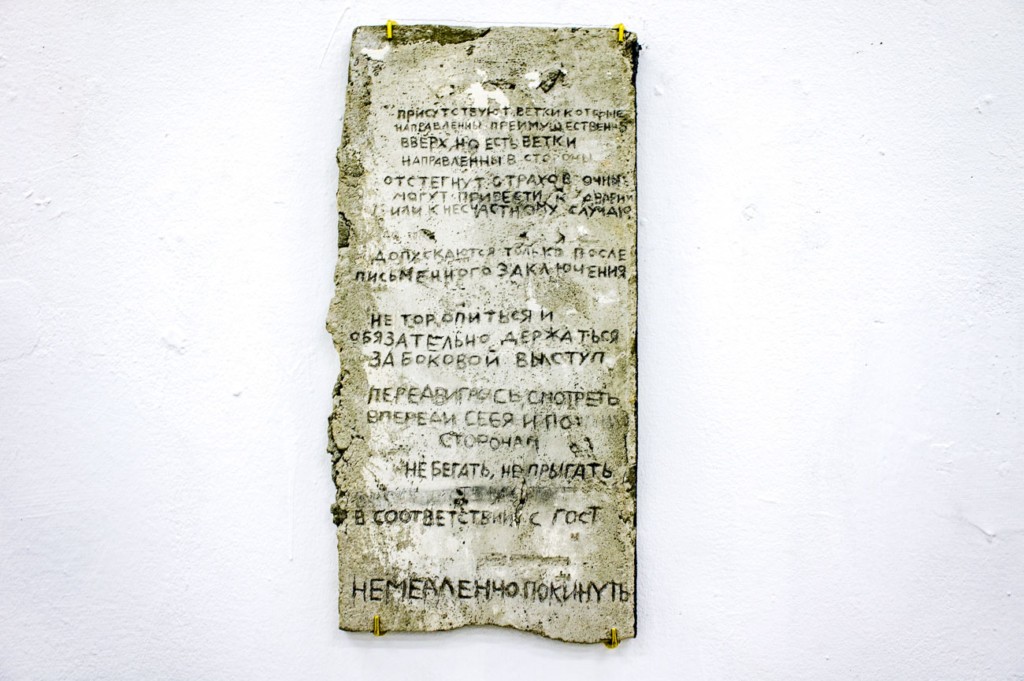 ПРИСУТСТВУЮТ ВЕТКИ КОТОРЫЕ
НАПРАВЛЕННЫ ПРЕИМУЩЕСТВЕННО
ВВЕРХ, НО ЕСТЬ ВЕТКИ
НАПРАВЛЕННЫ В СТОРОНЫ
ОТСТЕГНУТ СТРАХОВОЧНЫЕ
МОГУТ ПРИВЕСТИ К АВАРИИ
ИЛИ К НЕСЧАСТНОМУ СЛУЧАЮ
ДОПУСКАЮТСЯ ТОЛЬКО ПОСЛЕ
ПИСЬМЕННОГО ЗАКЛЮЧЕНИЯ
НЕ ТОРОПИТЬСЯ И
ОБЯЗАТЕЛЬНО ДЕРЖАТЬСЯ
ЗА БОКОВОЙ ВЫСТУП
ПЕРЕДВИГАЯСЬ, СМОТРЕТЬ
ВПЕРЕДИ СЕБЯ И ПО
СТОРОНАМ
НЕ БЕГАТЬ, НЕ ПРЫГАТЬ
В СООТВЕТСТВИИ С ГОСТ
НЕМЕДЛЕННО ПОКИНУТЬ